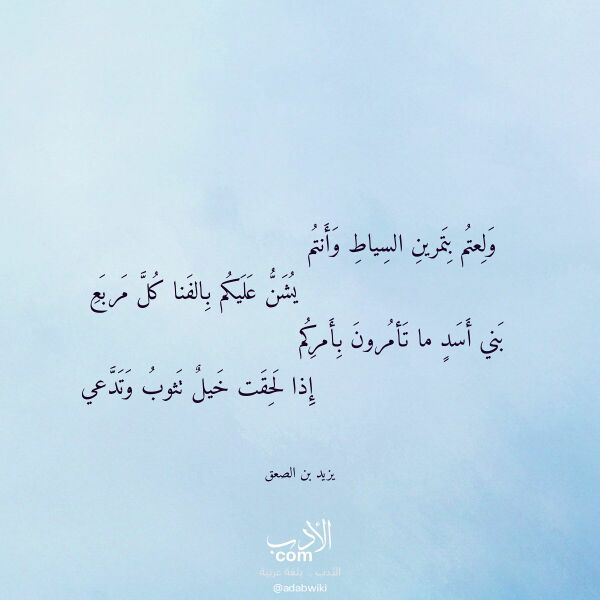 وَلِعتُم بِتَمرينِ السِياطِ وَأَنتُم
يُشَنُّ عَلَيكُم بِالفَنا كُلَّ مَربَعِ
بَني أَسَدٍ ما تَأمُرونَ بِأَمرِكُم
إِذا لَحِقَت خَيلٌ تَثوبُ وَتَدَّعي
يزيد بن الصعق
الأدب
com
الأدب .. بلغة عربية
@adabwiki